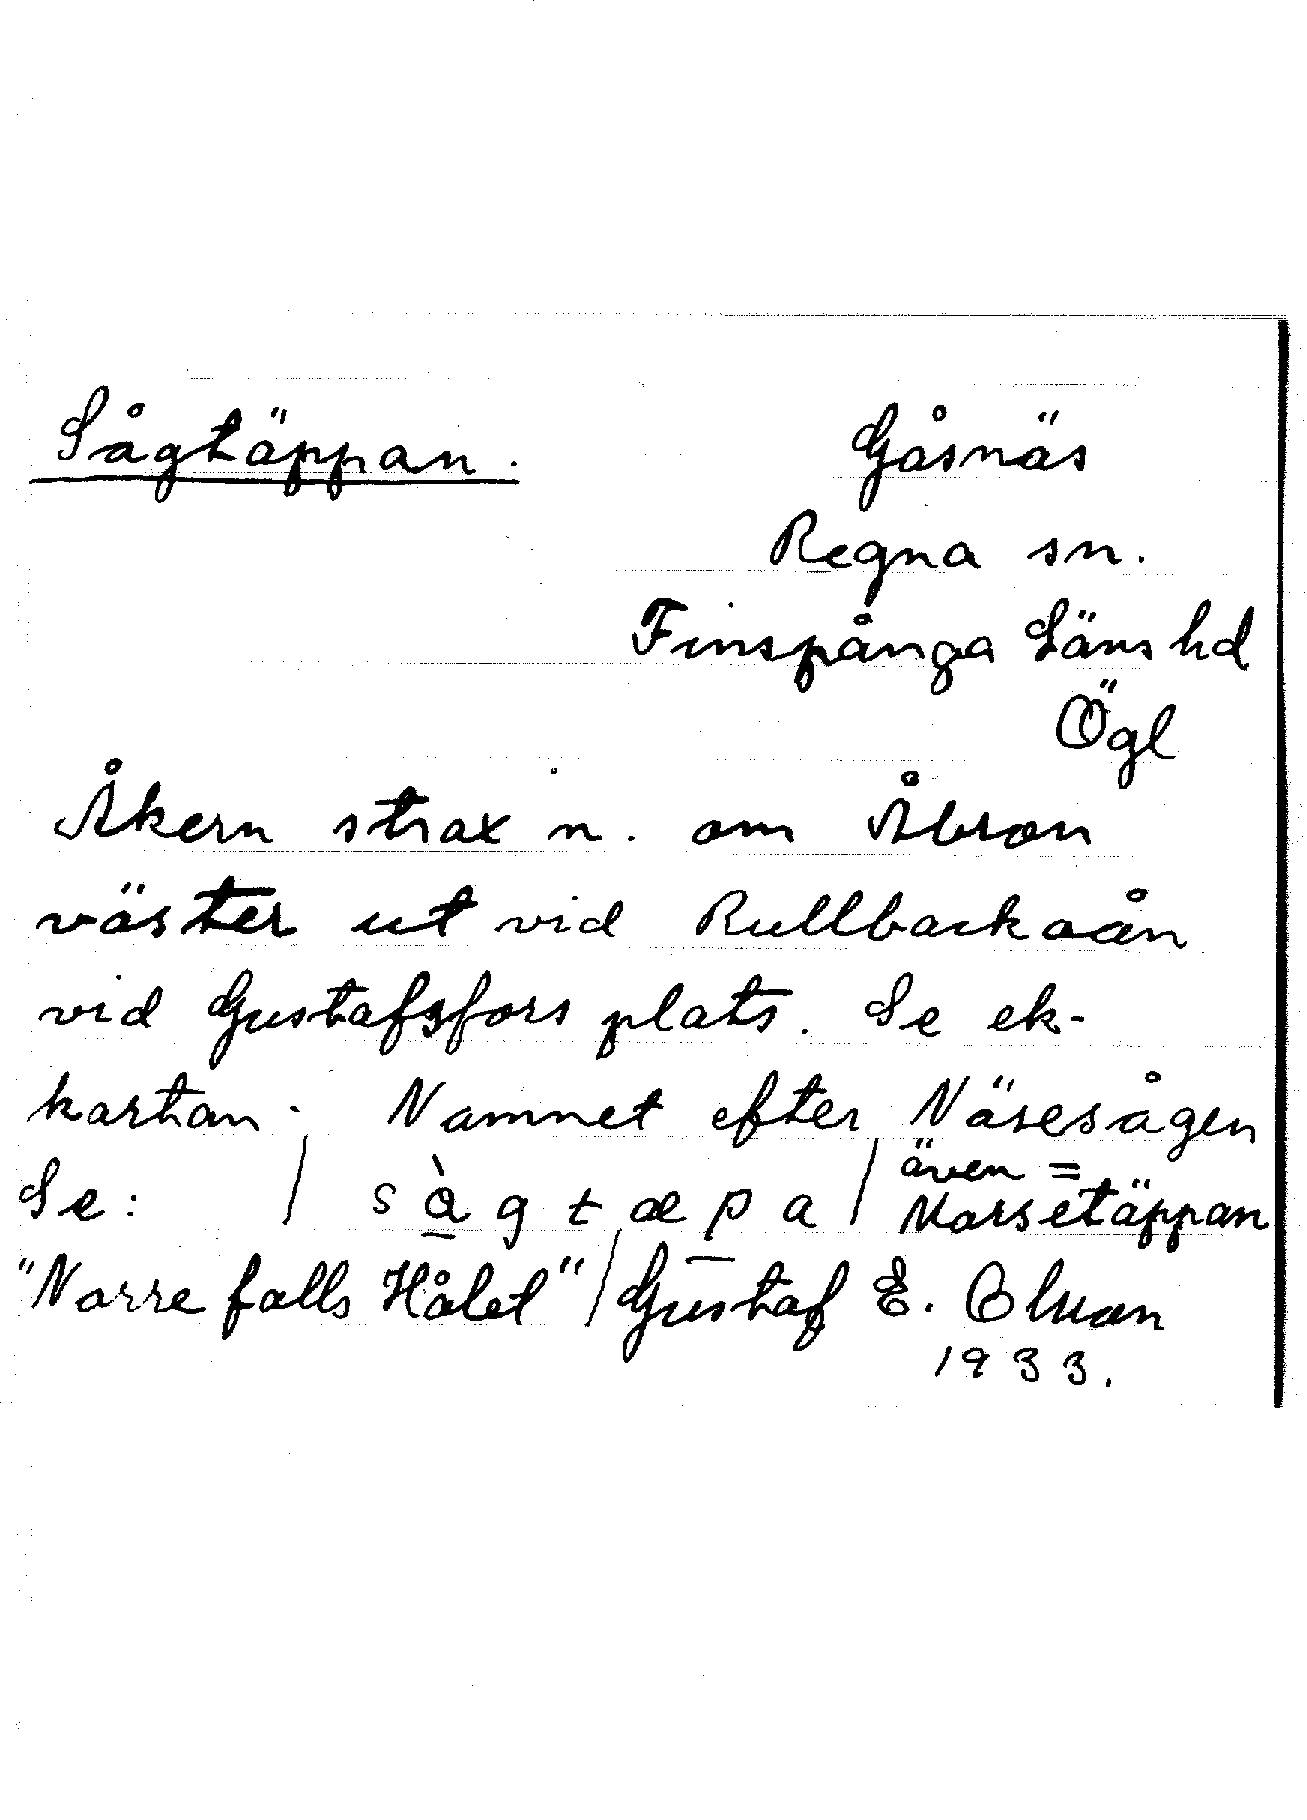 Sågtäppan.
Gåsnäs
Regna sn.
Finspånga Läns hd
Ögl
Åkern strax n. om Åbron
väster ut vid Rullbackaån
vid Gustafsfors plats. Se ek-
kartan. Namnet efter Näsesågen
Se: / sàgtæpa / även =
Norsetäppan
"Norrefalls Hålet" / Gustaf E.
1933.